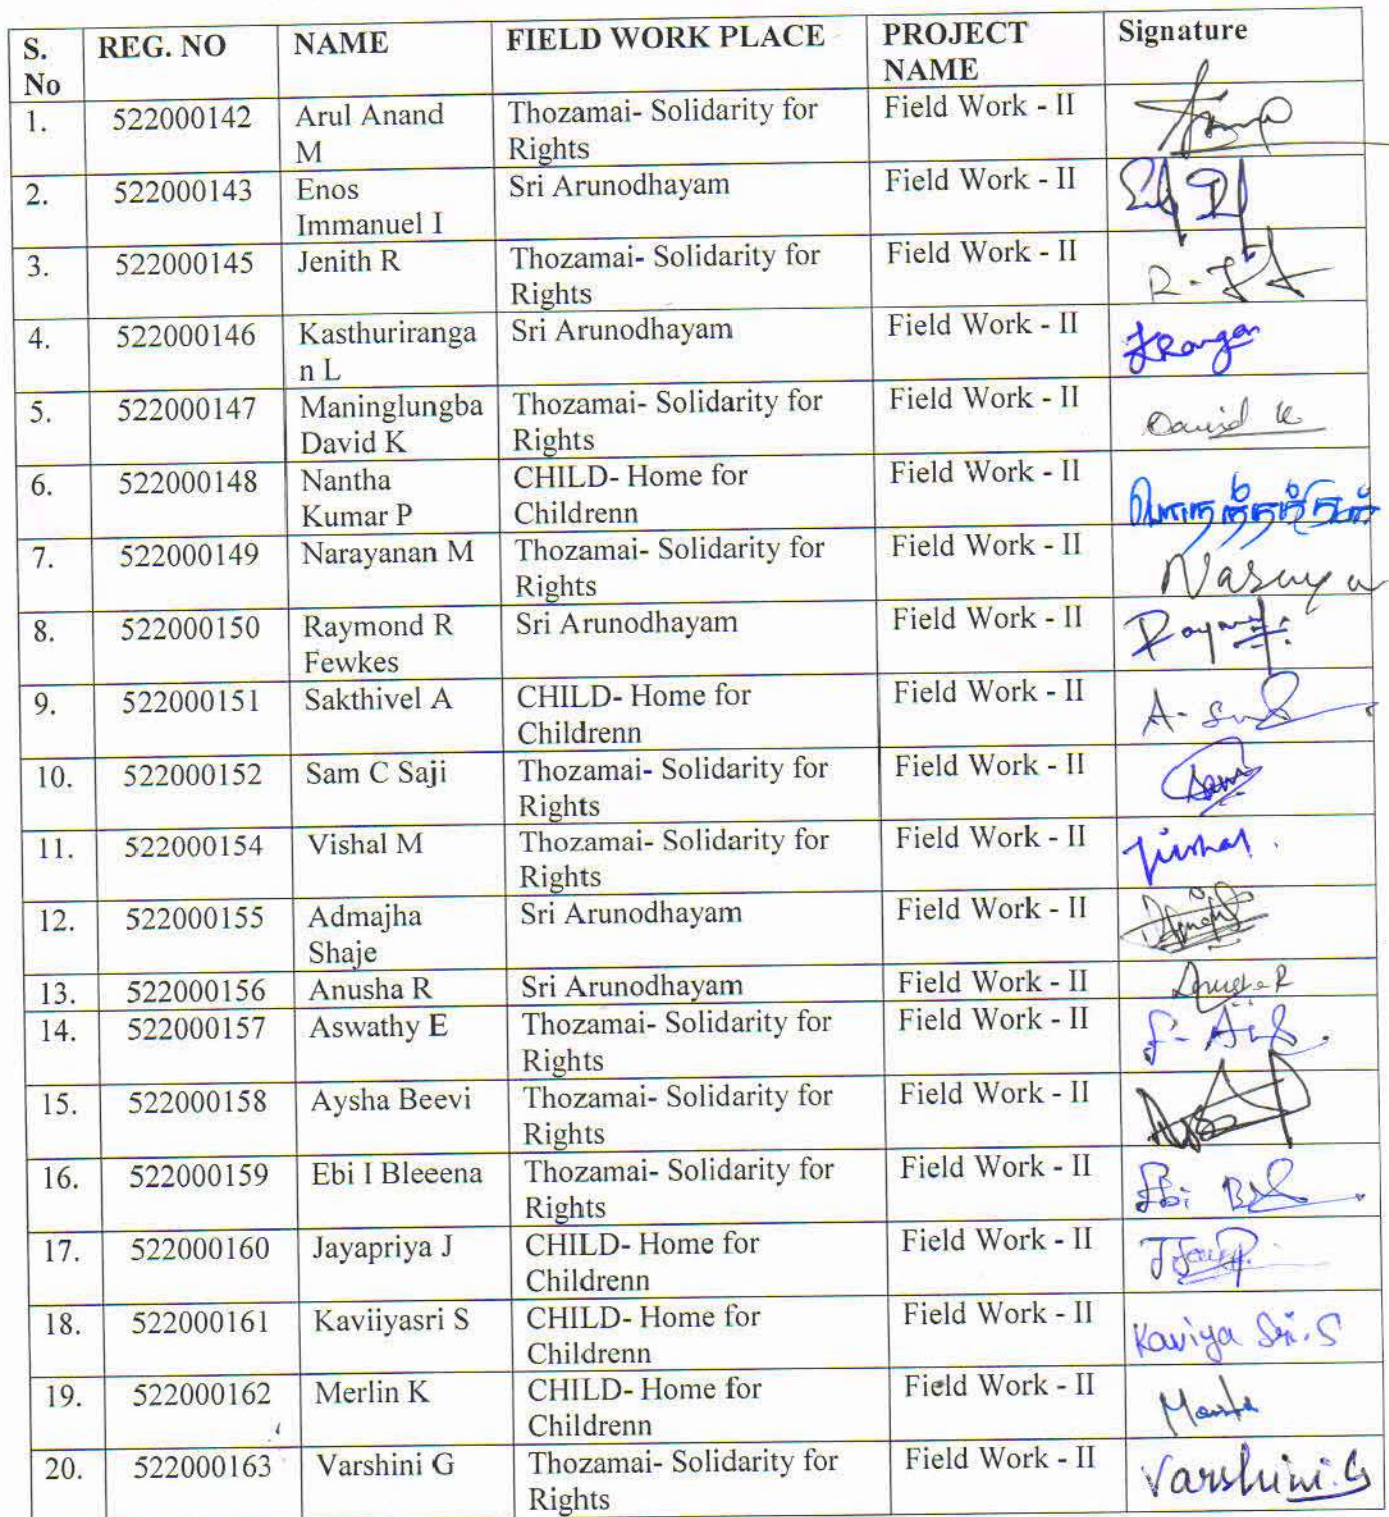 S. No REG. NO NAME FIELD WORK PLACE PROJECT NAME Signature
1. 522000142 Arul Anand M Thozamai- Solidarity for Rights Field Work - II
2. 522000143 Enos Immanuel I Sri Arunodhayam Field Work - II
3. 522000145 Jenith R Thozamai- Solidarity for Rights Field Work - II
4. 522000146 Kasthurirangan L Sri Arunodhayam Field Work - II
5. 522000147 Maninglungba David K Thozamai- Solidarity for Rights Field Work - II David K
6. 522000148 Nantha Kumar P CHILD- Home for Childrenn Field Work - II
7. 522000149 Narayanan M Thozamai- Solidarity for Rights Field Work - II
8. 522000150 Raymond R Fewkes Sri Arunodhayam Field Work - II
9. 522000151 Sakthivel A CHILD- Home for Childrenn Field Work - II
10. 522000152 Sam C Saji Thozamai- Solidarity for Rights Field Work - II
11. 522000154 Vishal M Thozamai- Solidarity for Rights Field Work - II Vishal.
12. 522000155 Admajha Shaje Sri Arunodhayam Field Work - II
13. 522000156 Anusha R Sri Arunodhayam Field Work - II
14. 522000157 Aswathy E Thozamai- Solidarity for Rights Field Work - II
15. 522000158 Aysha Beevi Thozamai- Solidarity for Rights Field Work - II
16. 522000159 Ebi I Bleeena Thozamai- Solidarity for Rights Field Work - II
17. 522000160 Jayapriya J CHILD- Home for Childrenn Field Work - II
18. 522000161 Kaviiyasri S CHILD- Home for Childrenn Field Work - II Kaviya Sri.S
19. 522000162 Merlin K CHILD- Home for Childrenn Field Work - II
20. 522000163 Varshini G Thozamai- Solidarity for Rights Field Work - II Varshini.G